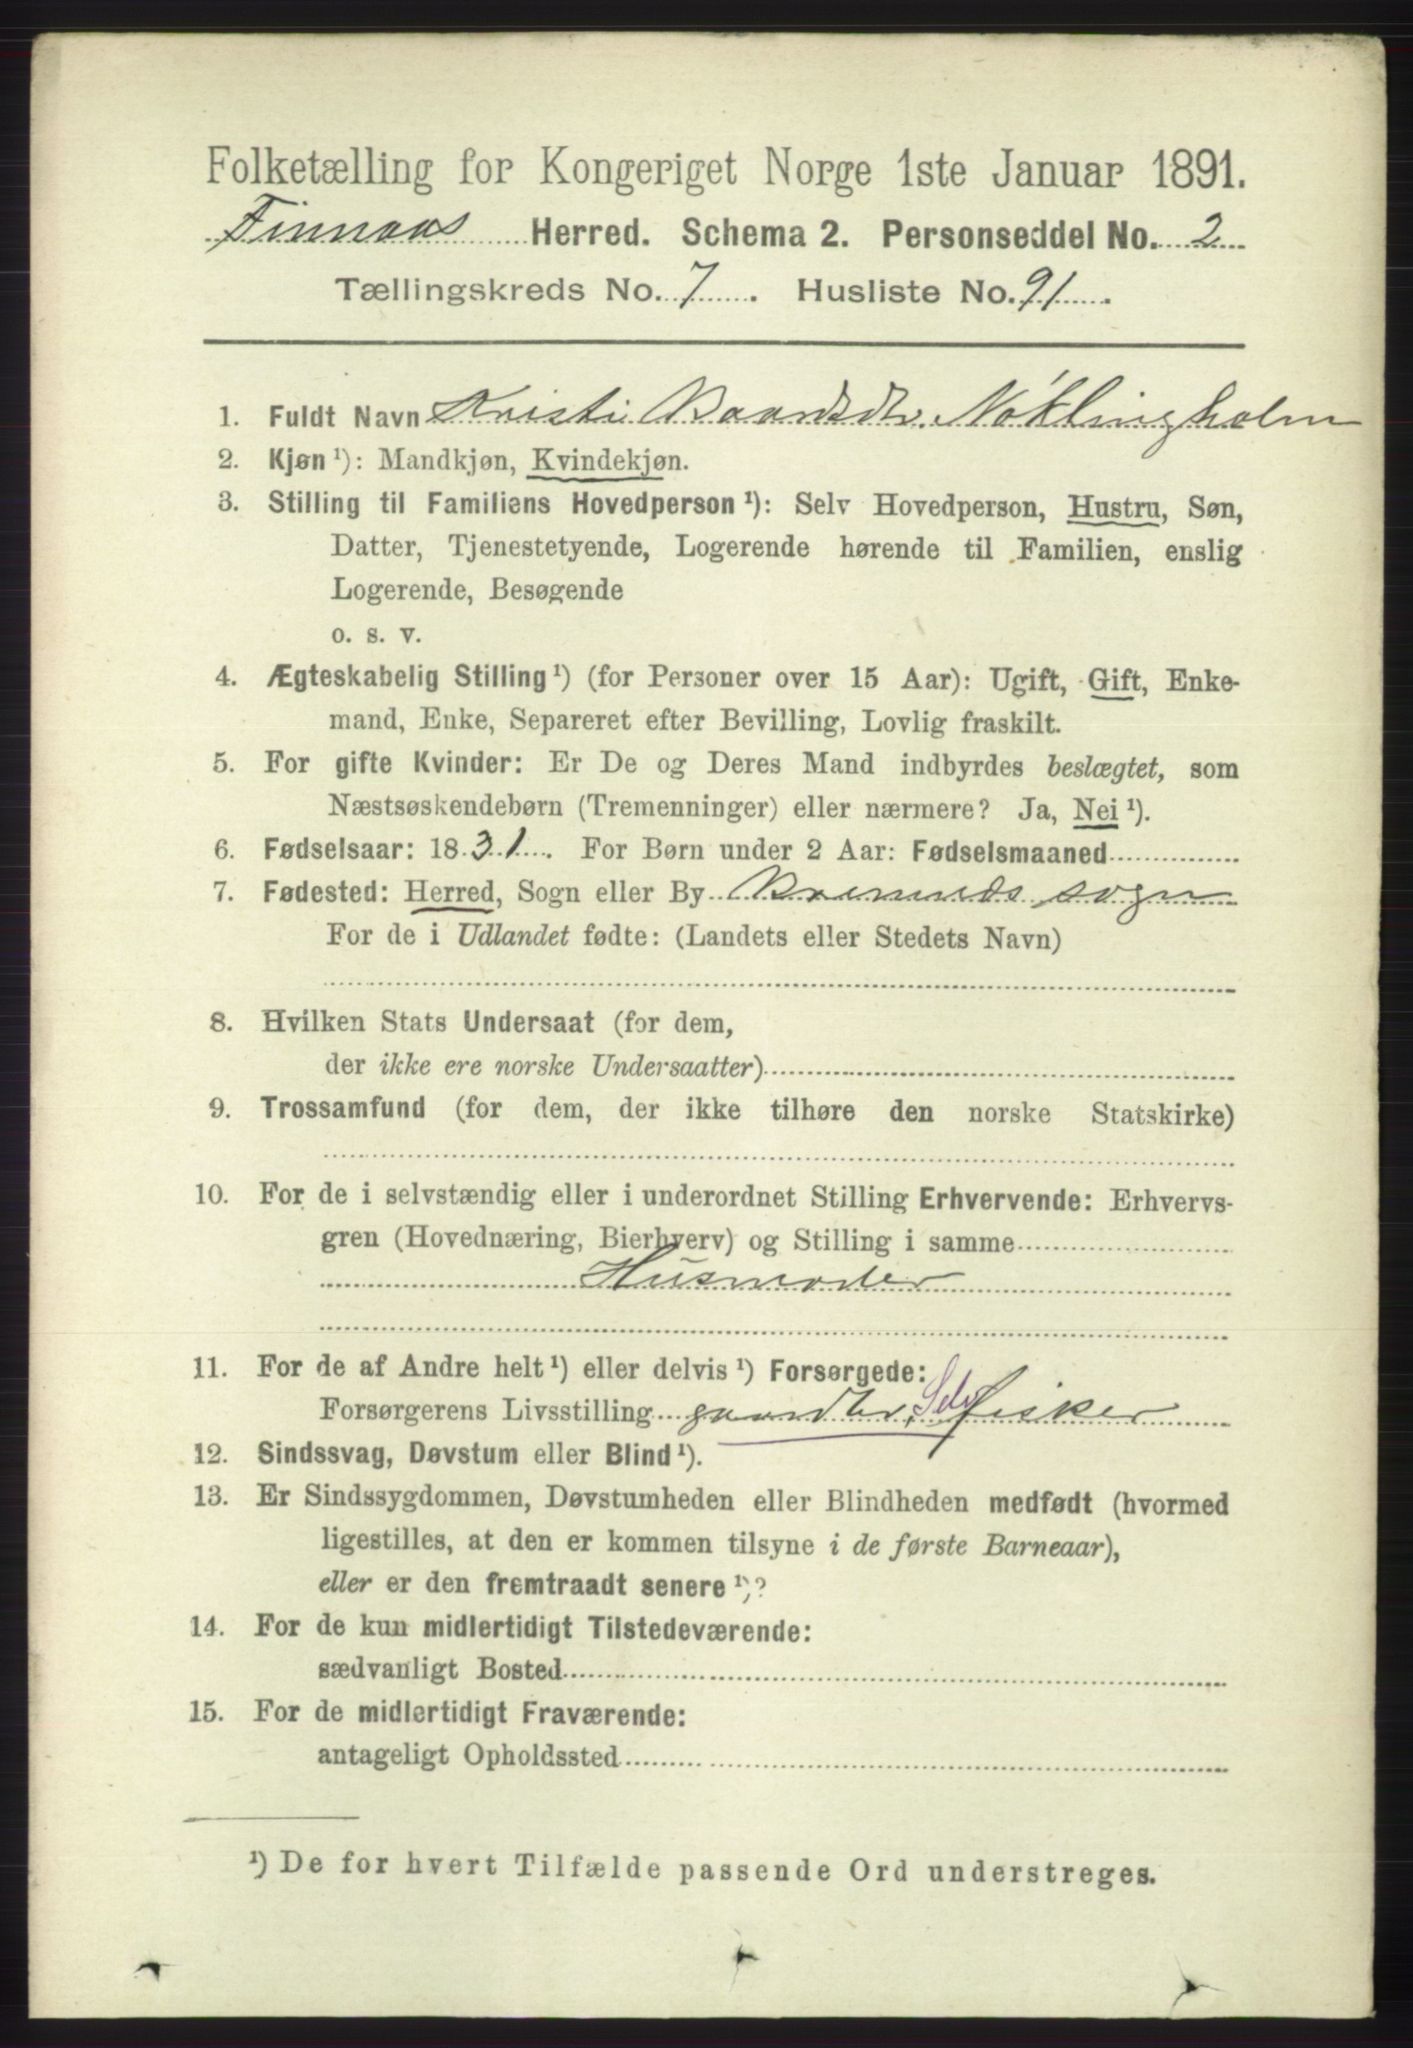 Folketælling for Kongeriget Norge 1ste Januar 1891.
Finnaas Herred. Schema 2. Personseddel No. 2
Tællingskreds No. 7. Husliste No. 91.
1. Fuldt Navn Kristi Baardsdtr. Nøklingholm
2. Kjøn ¹): Mandkjøn, Kvindekjøn.
3. Stilling til Familiens Hovedperson ¹): Selv Hovedperson, Hustru, Søn,
Datter, Tjenestetyende, Logerende hørende til Familien, enslig
Logerende, Besøgende
o. s. v.
4. Ægteskabelig Stilling ¹) (for Personer over 15 Aar): Ugift, Gift, Enke-
mand, Enke, Separeret efter Bevilling, Lovlig fraskilt.
5. For gifte Kvinder: Er De og Deres Mand indbyrdes beslægtet, som
Næstsøskendebørn (Tremenninger) eller nærmere? Ja, Nei ¹).
6. Fødselsaar: 1831. For Børn under 2 Aar: Fødselsmaaned
7. Fødested: Herred, Sogn eller By Bremnes sogn
For de i Udlandet fødte: (Landets eller Stedets Navn)
8. Hvilken Stats Undersaat (for dem,
der ikke ere norske Undersaatter)
9. Trossamfund (for dem, der ikke tilhøre den norske Statskirke)
10. For de i selvstændig eller i underordnet Stilling Erhvervende: Erhvervs-
gren (Hovednæring, Bierhverv) og Stilling i samme
Husmoder
11. For de af Andre helt ¹) eller delvis ¹) Forsørgede:
Forsørgerens Livsstilling gaardbr. Selv fisker
12. Sindssvag, Døvstum eller Blind ¹).
13. Er Sindssygdommen, Døvstumheden eller Blindheden medfødt (hvormed
ligestilles, at den er kommen tilsyne i de første Barneaar),
eller er den fremtraadt senere ¹)?
14. For de kun midlertidigt Tilstedeværende:
sædvanligt Bosted
15. For de midlertidigt Fraværende:
antageligt Opholdssted
¹) De for hvert Tilfælde passende Ord understreges.